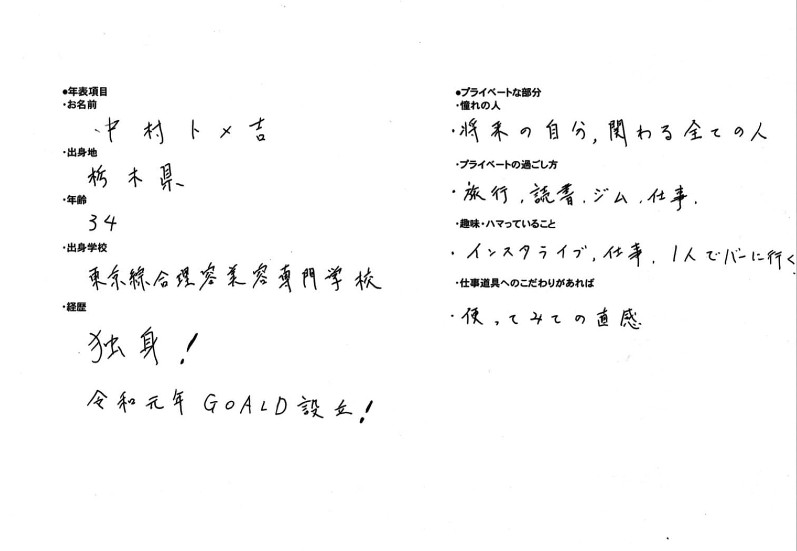 ●年表項目
・お名前
中村トメ吉
・出身地
栃木県
・年齢
34
・出身学校
東京綜合理容美容専門学校
・経歴
独身!
令和元年 GOALD設立!
●プライベートな部分
・憧れの人
・将来の自分, 関わる全ての人
・プライベートの過ごし方
・旅行, 読書, ジム, 仕事.
・趣味・ハマっていること
・インスタライブ, 仕事, 1人でバーに行く
・仕事道具へのこだわりがあれば
・使ってみての直感